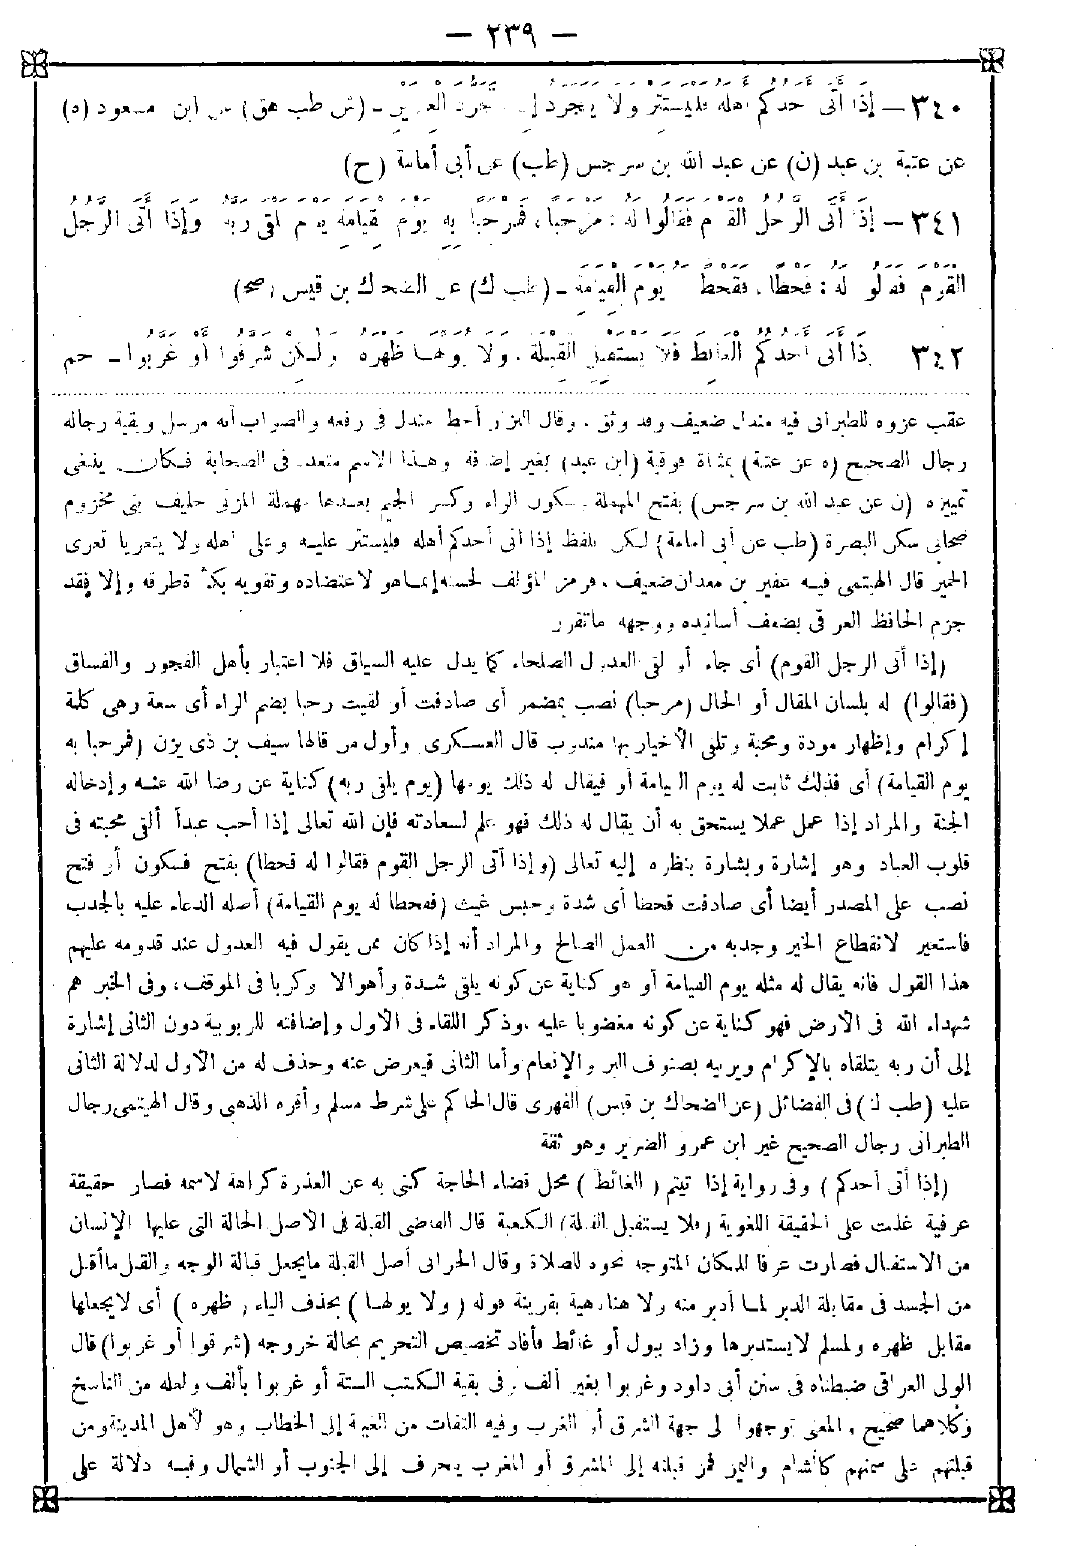 — ٢٣٩ —
٣٤٠ — إِذَا أَتَى أَحَدُكُمْ أَهْلَهُ فَلْيَسْتَتِرْ وَلَا يَتَجَرَّدْ تَجَرُّدَ الْعِيرَيْنِ - (ش طب هق) عن ابن مسعود (ه)
عن عتبة بن عبد (ن) عن عبد الله بن سرجس (طب) عن أبى أمامة (ح)
٣٤١ — إِذَا أَتَى الرَّجُلُ الْقَوْمَ فَقَالُوا لَهُ: مَرْحَبًا، فَمَرْحَبًا بِهِ يَوْمَ الْقِيَامَةِ يَوْمَ يَلْقَى رَبَّهُ وَإِذَا أَتَى الرَّجُلُ
الْقَوْمَ فَقَالُوا لَهُ: قَحْطًا، فَقَحْطًا لَهُ يَوْمَ الْقِيَامَةِ - (طب ك) عن الضحاك بن قيس (صح)
٣٤٢ إِذَا أَتَى أَحَدُكُمُ الْغَائِطَ فَلَا يَسْتَقْبِلِ الْقِبْلَةَ، وَلَا يُوَلِّهَا ظَهْرَهُ وَلَكِنْ شَرِّقُوا أَوْ غَرِّبُوا - حم
عقب عزوه للطبرانى فيه مندل ضعيف وقد وثق، وقال البزار أخطأ مندل فى رفعه والصواب أنه مرسل وبقية رجاله
رجال الصحيح (ه عن عتبة) بمثناة فوقية (ابن عبد) بغير إضافة وهذا الاسم متعدد فى الصحابة فكان ينبغى
تمييزه (ن عن عبد الله بن سرجس) بفتح المهملة وسكون الراء وكسر الجيم بعدها مهملة المزنى حليف بنى مخزوم
صحابى سكن البصرة (طب عن أبى أمامة) لكن بلفظ إذا أتى أحدكم أهله فليستتر عليه وعلى أهله ولا يتعريا تعرى
الحمير قال الهيتمى فيه عفير بن معدان ضعيف، فرمز المؤلف لحسنه إنما هو لاعتضاده وتقويه بكثرة طرقه وإلا فقد
جزم الحافظ العراقى بضعف أسانيده ووجهه ماتقرر
(إذا أتى الرجل القوم) أى جاء أو لقى العدول الصلحاء كما يدل عليه السياق فلا اعتبار بأهل الفجور والفساق
(فقالوا) له بلسان المقال أو الحال (مرحبا) نصب بمضمر أى صادفت أو لقيت رحبا بضم الراء أى سعة وهى كلمة
إكرام وإظهار مودة ومحبة وتلقى الأخيار بها مندوب قال العسكرى وأول من قالها سيف بن ذى يزن (فمرحبا به
يوم القيامة) أى فذلك ثابت له يوم القيامة أو فيقال له ذلك يومها (يوم يلقى ربه) كناية عن رضا الله عنه وإدخاله
الجنة والمراد إذا عمل عملا يستحق به أن يقال له ذلك فهو علم لسعادته فإن الله تعالى إذا أحب عبدا ألقى محبته فى
قلوب العباد وهو إشارة وبشارة بنظره إليه تعالى (وإذا أتى الرجل القوم فقالوا له قحطا) بفتح فسكون أو فتح
نصب على المصدر أيضا أى صادفت قحطا أى شدة وحبس غيث (فقحطا له يوم القيامة) أصله الدعاء عليه بالجدب
فاستعير لانقطاع الخير وجدبه من العمل الصالح والمراد أنه إذا كان ممن يقول فيه العدول عند قدومه عليهم
هذا القول فانه يقال له مثله يوم القيامة أو هو كناية عن كونه يلقى شدة وأهوالا وكربا فى الموقف، وفى الخبر هم
شهداء الله فى الأرض فهو كناية عن كونه مغضوبا عليه، وذكر اللقاء فى الأول وإضافته للربوبية دون الثانى إشارة
إلى أن ربه يتلقاه بالإكرام ويربيه بصنوف البر والإنعام وأما الثانى فيعرض عنه وحذف له من الأول لدلالة الثانى
عليه (طب ك) فى الفضائل (عن الضحاك بن قيس) الفهرى قال الحاكم على شرط مسلم وأقره الذهبى وقال الهيتمى رجال
الطبرانى رجال الصحيح غير ابن عمرو الضرير وهو ثقة
(إذا أتى أحدكم) وفى رواية إذا تيتم (الغائط) محل قضاء الحاجة كنى به عن العذرة كراهة لاسمه فصار حقيقة
عرفية غلبت على الحقيقة اللغوية (فلا يستقبل القبلة) الكعبة قال القاضى القبلة فى الاصل الحالة التى عليها الإنسان
من الاستقبال فصارت عرفا للمكان المتوجه نحوه للصلاة وقال الحرانى أصل القبلة مايجعل قبالة الوجه والقبل ماأقبل
من الجسد فى مقابلة الدبر لما أدبر منه ولا هنا ناهية بقرينة قوله (ولا يولها) بحذف الياء (ظهره) أى لايجعلها
مقابل ظهره ولمسلم لايستدبرها وزاد ببول أو غائط فأفاد تخصيص التحريم بحالة خروجه (شرقوا أو غربوا) قال
الولى العراقى ضبطناه فى سنن أبى داود وغربوا بغير ألف وفى بقية الكتب الستة أو غربوا بألف ولعله من الناسخ
وكلاهما صحيح، والمعنى توجهوا إلى جهة الشرق أو الغرب وفيه التفات من الغيبة إلى الخطاب وهو لأهل المدينة ومن
قبلتهم على سمتهم كالشام واليمن فمن قبلته إلى المشرق أو المغرب ينحرف إلى الجنوب أو الشمال وفيه دلالة على